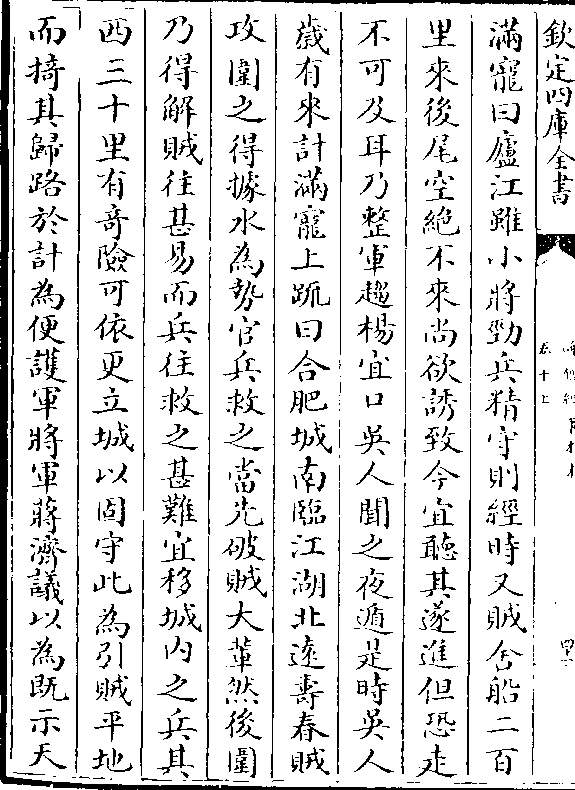 欽定四庫全書
滿寵曰廬江雖小將勁兵精守則經時又賊舍船二百
里來後尾空絶不來尚欲誘致今宜聽其遂進但恐走
不可及耳乃整軍趨楊宜口吳人聞之夜遁是時吳人
歲有來計滿寵上疏曰合肥城南臨江湖北逺壽春賊
攻圍之得據水為勢官兵救之當先破賊大軰然後圍
乃得解賊往甚易而兵往救之甚難宜移城内之兵其
西三十里有奇險可依更立城以固守此為引賊平地
而掎其歸路於計為便護軍將軍蔣濟議以為既示天